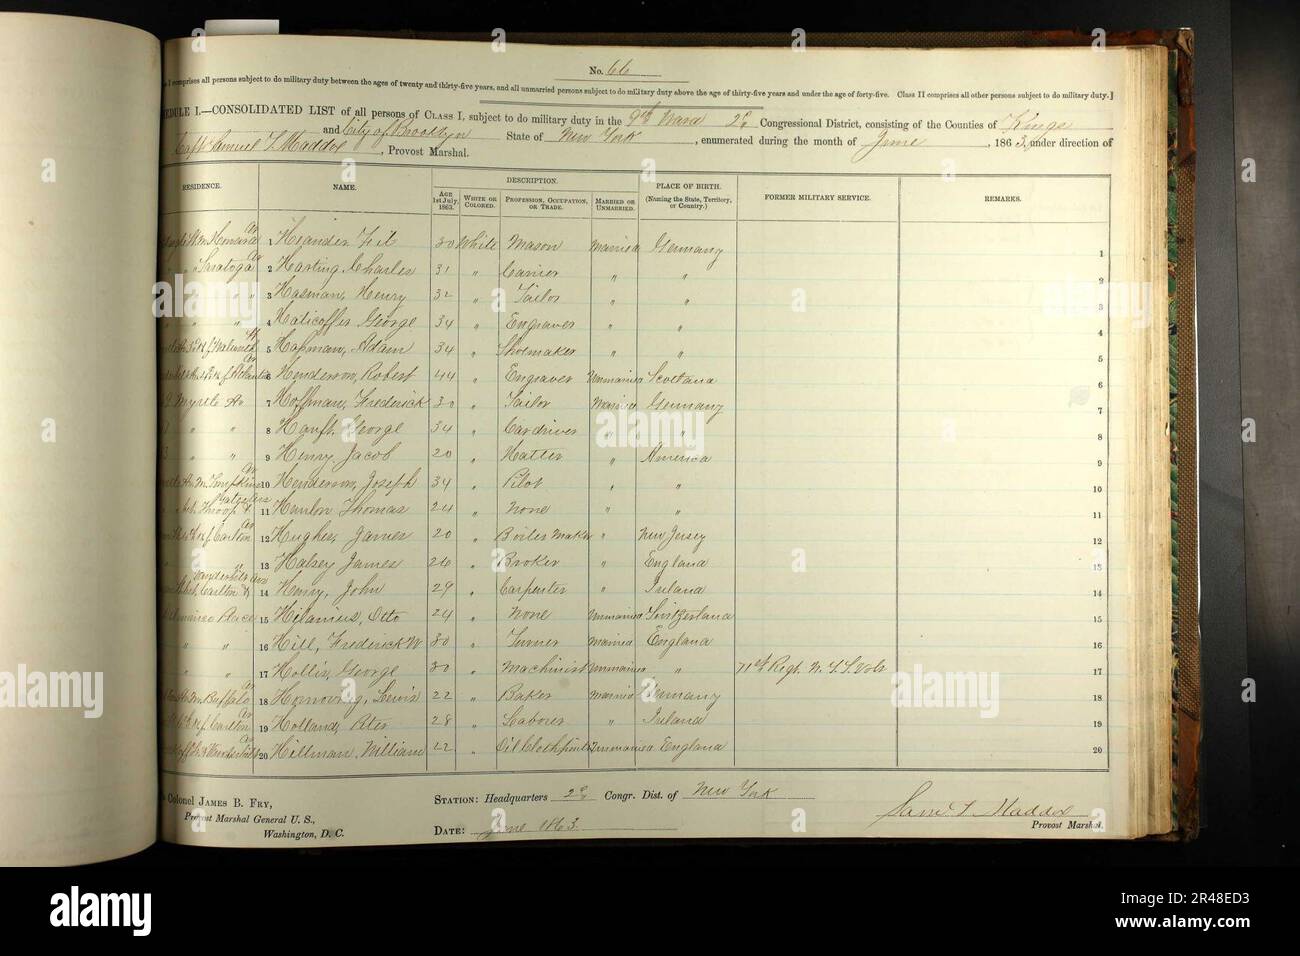 No. 66
I comprises all persons subject to do military duty between the ages of twenty and thirty-five years, and all unmarried persons subject to do military duty above the age of thirty-five years and under the age of forty-five. Class II comprises all other persons subject to do military duty.]
EDULE I.—CONSOLIDATED LIST of all persons of CLASS I, subject to do military duty in the 9th Ward 2d Congressional District, consisting of the Counties of Kings
and City of Brooklyn State of New York, enumerated during the month of June, 1863, under direction of
Capt Samuel T. Maddox, Provost Marshal.
RESIDENCE. NAME. DESCRIPTION. PLACE OF BIRTH. (Naming the State, Territory, or Country.) FORMER MILITARY SERVICE. REMARKS.
AGE 1st July, 1863. WHITE OR COLORED. PROFESSION, OCCUPATION, OR TRADE. MARRIED OR UNMARRIED.
Av 1 30 White Mason Married Germany 1
" Saratoga Av 2 Harting, Charles 31 " " " 2
" " " 3 Hasman, Henry 32 " Tailor " " 3
" " 4 George 34 " Engraver " " 4
5 Adam 34 " Shoemaker " " 5
Atlantic Av 6 Henderson, Robert 44 " Engraver Unmarried Scotland 6
Myrtle Av 7 Hoffman, Frederick 30 " Tailor Married Germany 7
" " 8 George 34 " Car driver " " 8
" " 9 Henry, Jacob 20 " Hatter " America 9
Tompkins Av 10 Henderson, Joseph 34 " Pilot " " 10
Throop & 11 Thomas 24 " None " " 11
Carlton Av 12 Hughes, James 20 " Boiler Maker " New Jersey 12
" 13 Halsey James 26 " Broker " England 13
Carlton & Vanderbilt Avs 14 Henry, John 29 " Carpenter " Ireland 14
Place 15 Otto 24 " None Unmarried Switzerland 15
" " 16 Hill, Frederick W 30 " Turner Married England 16
" " 17 Hollis, George 30 " Machinist Unmarried " 71st Regt. N.Y.S. Vols 17
Buffalo Av 18 Lewis 22 " Baker Married Germany 18
Carlton Av 19 Holland, Peter 28 " Laborer " Ireland 19
Vanderbilt Av 20 Hillman, William 22 " Oil Cloth Unmarried England 20
Colonel JAMES B. FRY,
Provost Marshal General U. S.,
Washington, D. C.
STATION: Headquarters 2d Congr. Dist. of New York
DATE: June 1863.
Sam T. Maddox
Provost Marshal.
alamy
Image ID: 2R48ED3
www.alamy.com